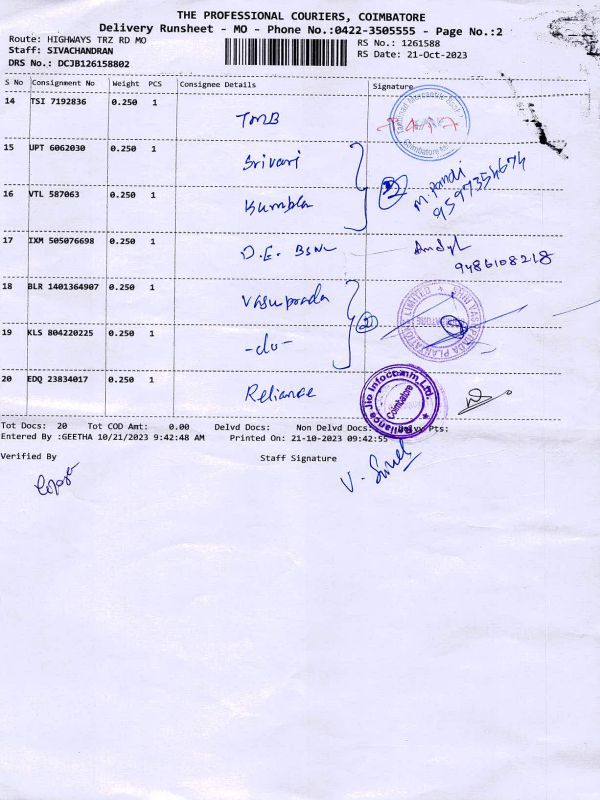 THE PROFESSIONAL COURIERS, COIMBATORE
Delivery Runsheet - MO - Phone No.:0422-3505555 - Page No.:2
Route: HIGHWAYS TRZ RD MO
RS No.: 1261588
Staff: SIVACHANDRAN
RS Date: 21-Oct-2023
DRS No.: DCJB126158802
S No Consignment No Weight PCS Consignee Details Signature
14 TSI 7192836 0.250 1 TMB
Coimbatore
15 UPT 6062030 0.250 1 Srivari
M. Pandi
9597354674
16 VTL 587063 0.250 1 Kumbla
17 IXM 505076698 0.250 1 D.E. BSNL
9486108218
18 BLR 1401364907 0.250 1 Vasuprada
2
19 KLS 804220225 0.250 1 -do-
20 EDQ 23834017 0.250 1 Reliance
Reliance Jio Infocomm Ltd.
Coimbatore
Tot Docs: 20 Tot COD Amt: 0.00 Delvd Docs: Non Delvd Docs: Pts:
Entered By :GEETHA 10/21/2023 9:42:48 AM Printed On: 21-10-2023 09:42:55
Verified By Staff Signature